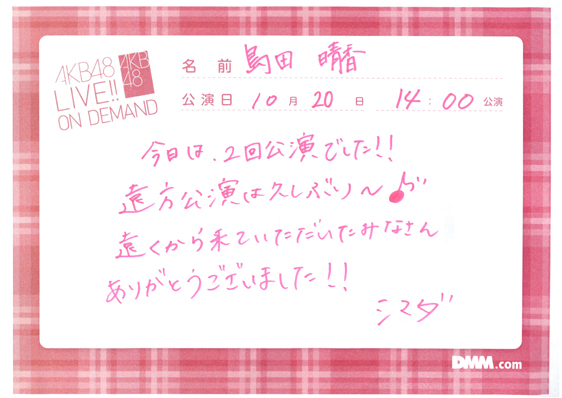 AKB48
LIVE!!
ON DEMAND
AKB
48
名前 島田 晴香
公演日 10月 20日 14:00 公演
今日は、2回公演でした!!
遠方公演は久しぶり〜♪
遠くから来ていただいたみなさん
ありがとうございました!!
シマダ
DMM.com